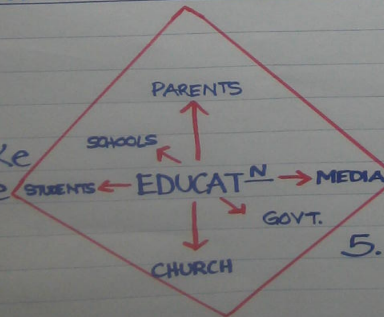 PARENTS
SCHOOLS
ke
e STUDENTS EDUCATN MEDIA
GOVT.
5.
CHURCH